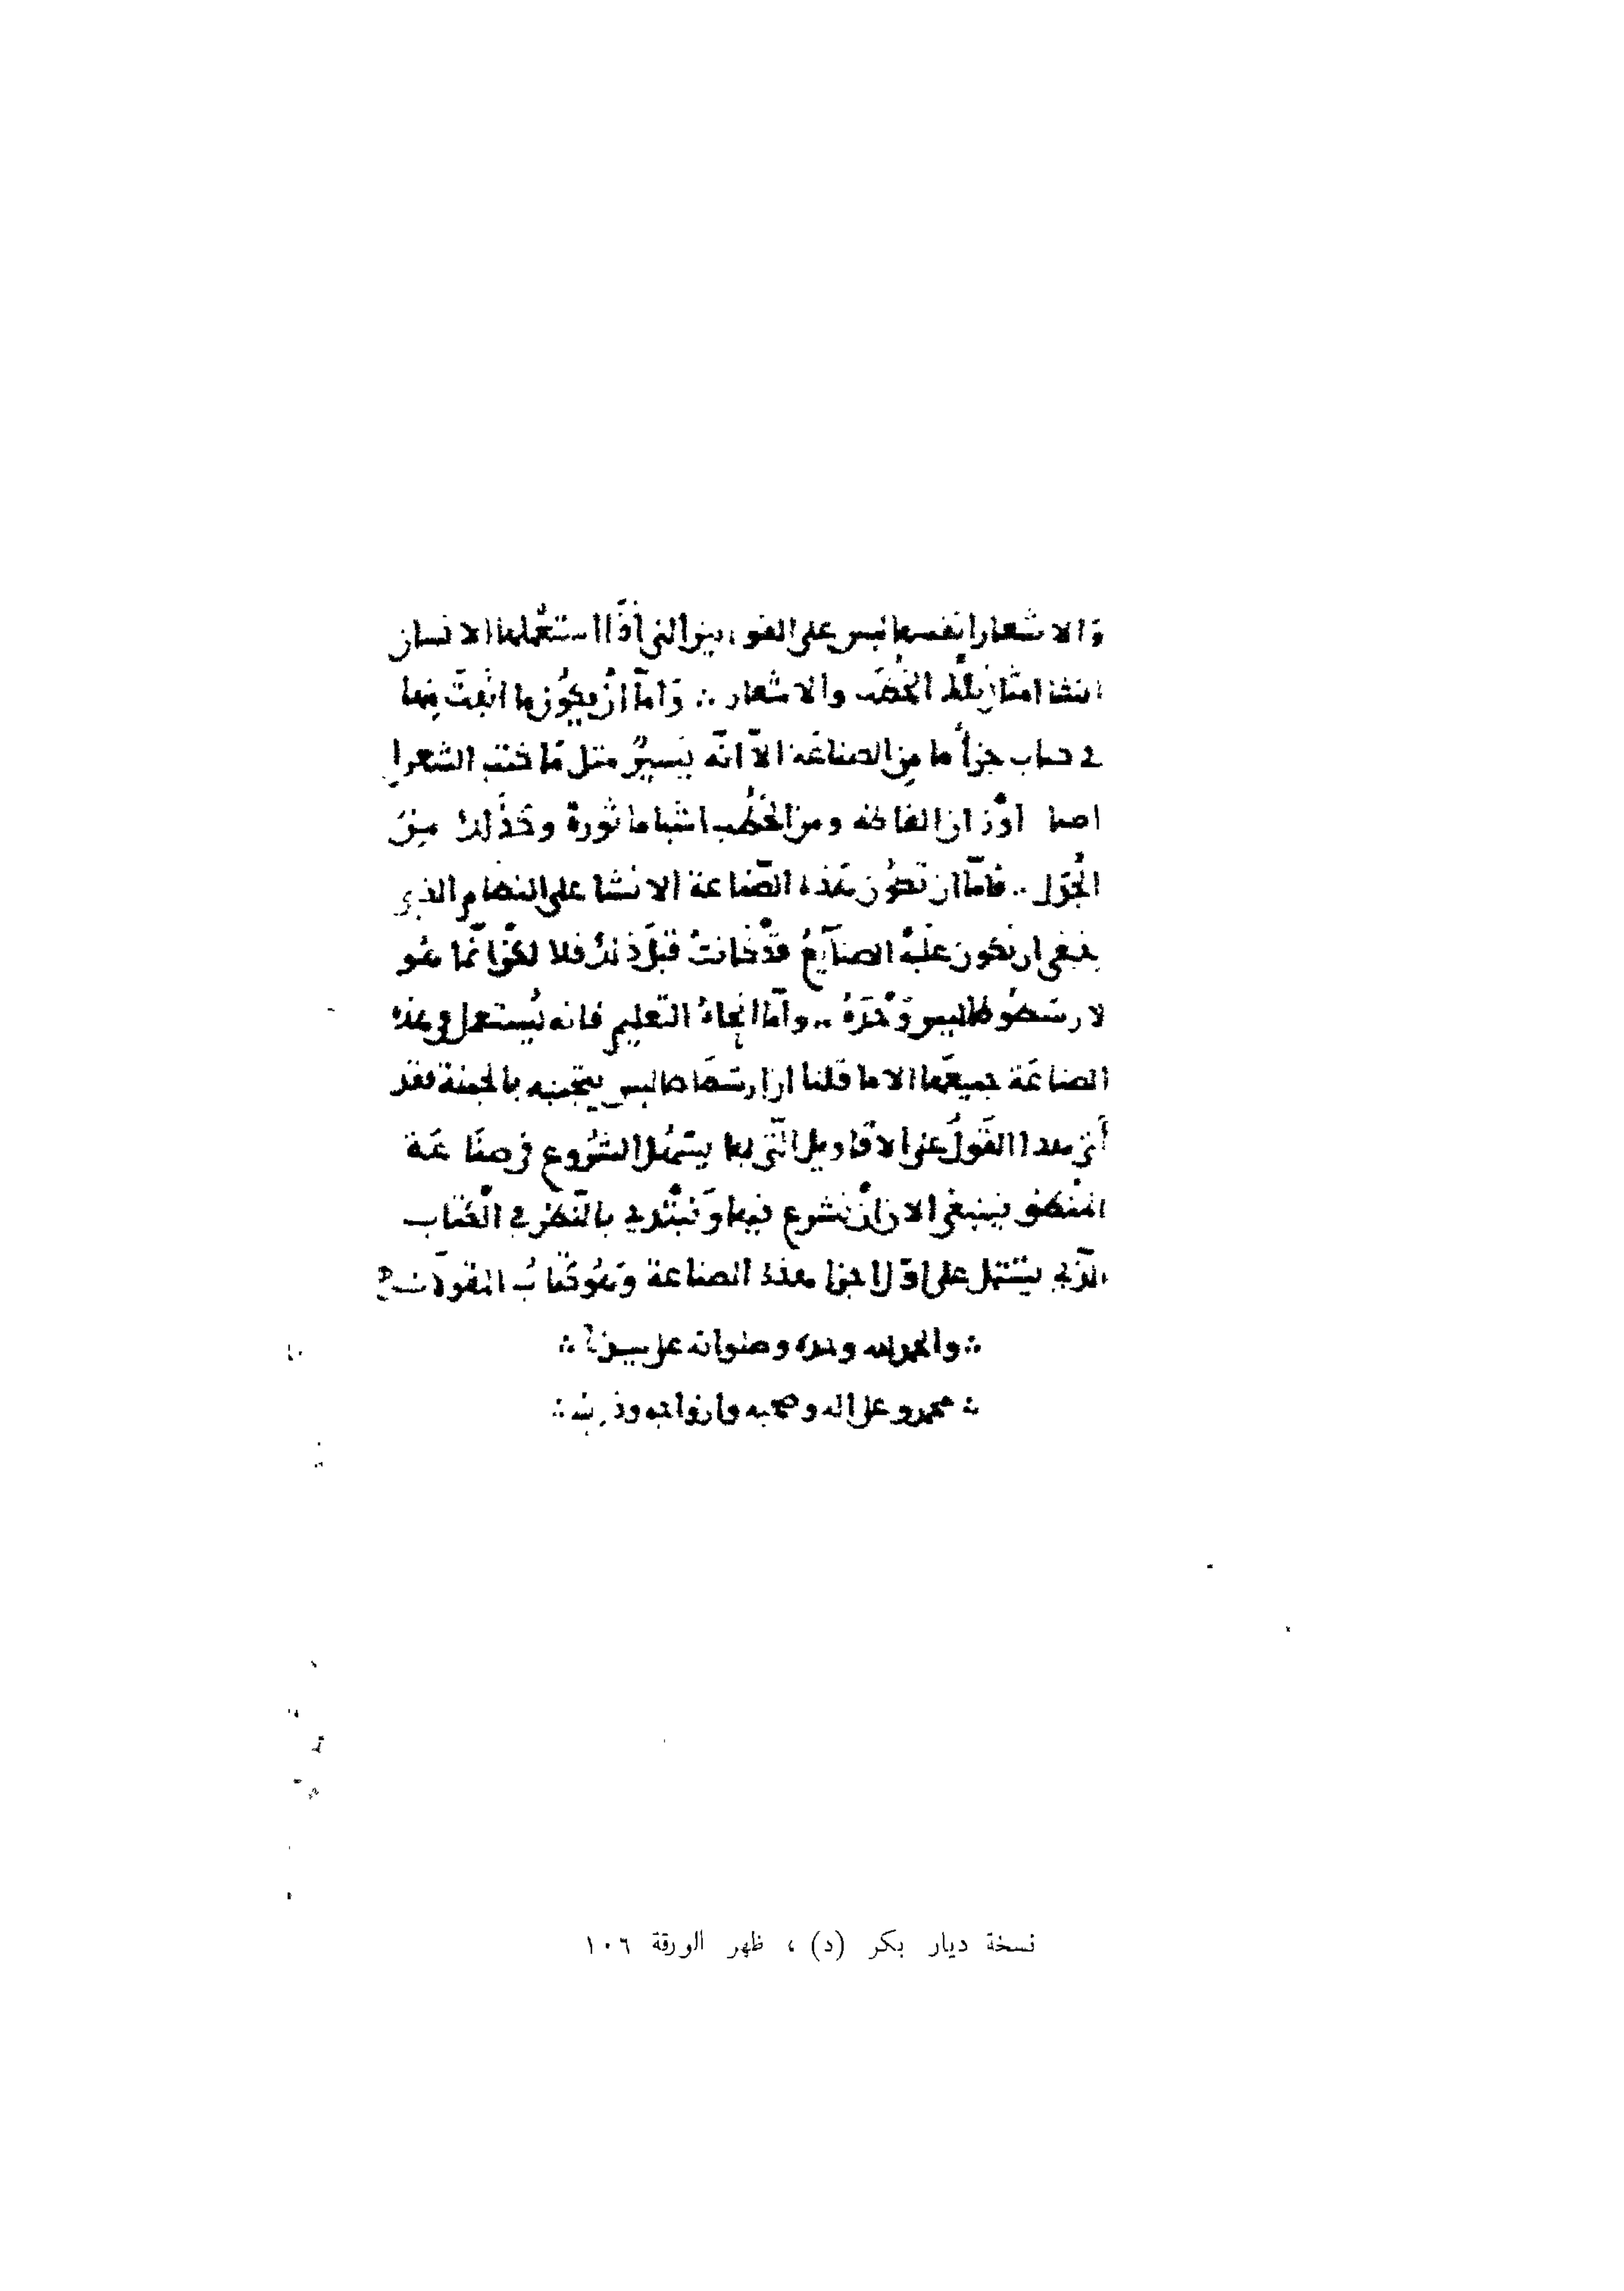 والاشعار انفسها ليس على القوانين التي اذا استعملها الانسان
انشا امثال تلك الخطب والاشعار ∴ وَامّا اَنْ يكوُن ما اثبت فيها
في كتاب جزأ ما من الصناعَة الاّ انّه يَسيرٌ مثل مَا كتب الشعرا
اصما اوْزان الفاظه ومن الخطب اشيا ماثورة وكَذَلك مِنَ
الجَدَل ∴ فامّا ان تكون هَذه الصّناعة الانشا على النظام الذي
ينبغي ان تكون عليه الصنآيعُ قدْ كانتْ قبل ذلك فلا لكنّ انّما هُو
لارسْطُوطاليس وَحْدَهُ ∴ وامّا انحاءُ التّعليم فانه يُستعمل في هذه
الصناعَة جميعَها الا ما قلنا ان ارسْطَاطاليس يتجنبه بالجملة فقد
أتى هذا القَولُ على الاقاويل الّتي بها يسَهُل الشُرُوع في صنَاعَة
المنْطق فينبغي الان أنْ نشرع فيها وَنَبْتَدي بالنَّظر في الْكتاب
الّذي يَشْتمل على اوّل اجزا هذه الصناعة وَهُو كتابُ المقولات
∴ والحمد لله وحده وصلواته على سيدنا ∴
∴ محمد وعلى اله وصحبه وازواجه وذريته ∴
نسخة ديار بكر (د) ، ظهر الورقة ١٠٦